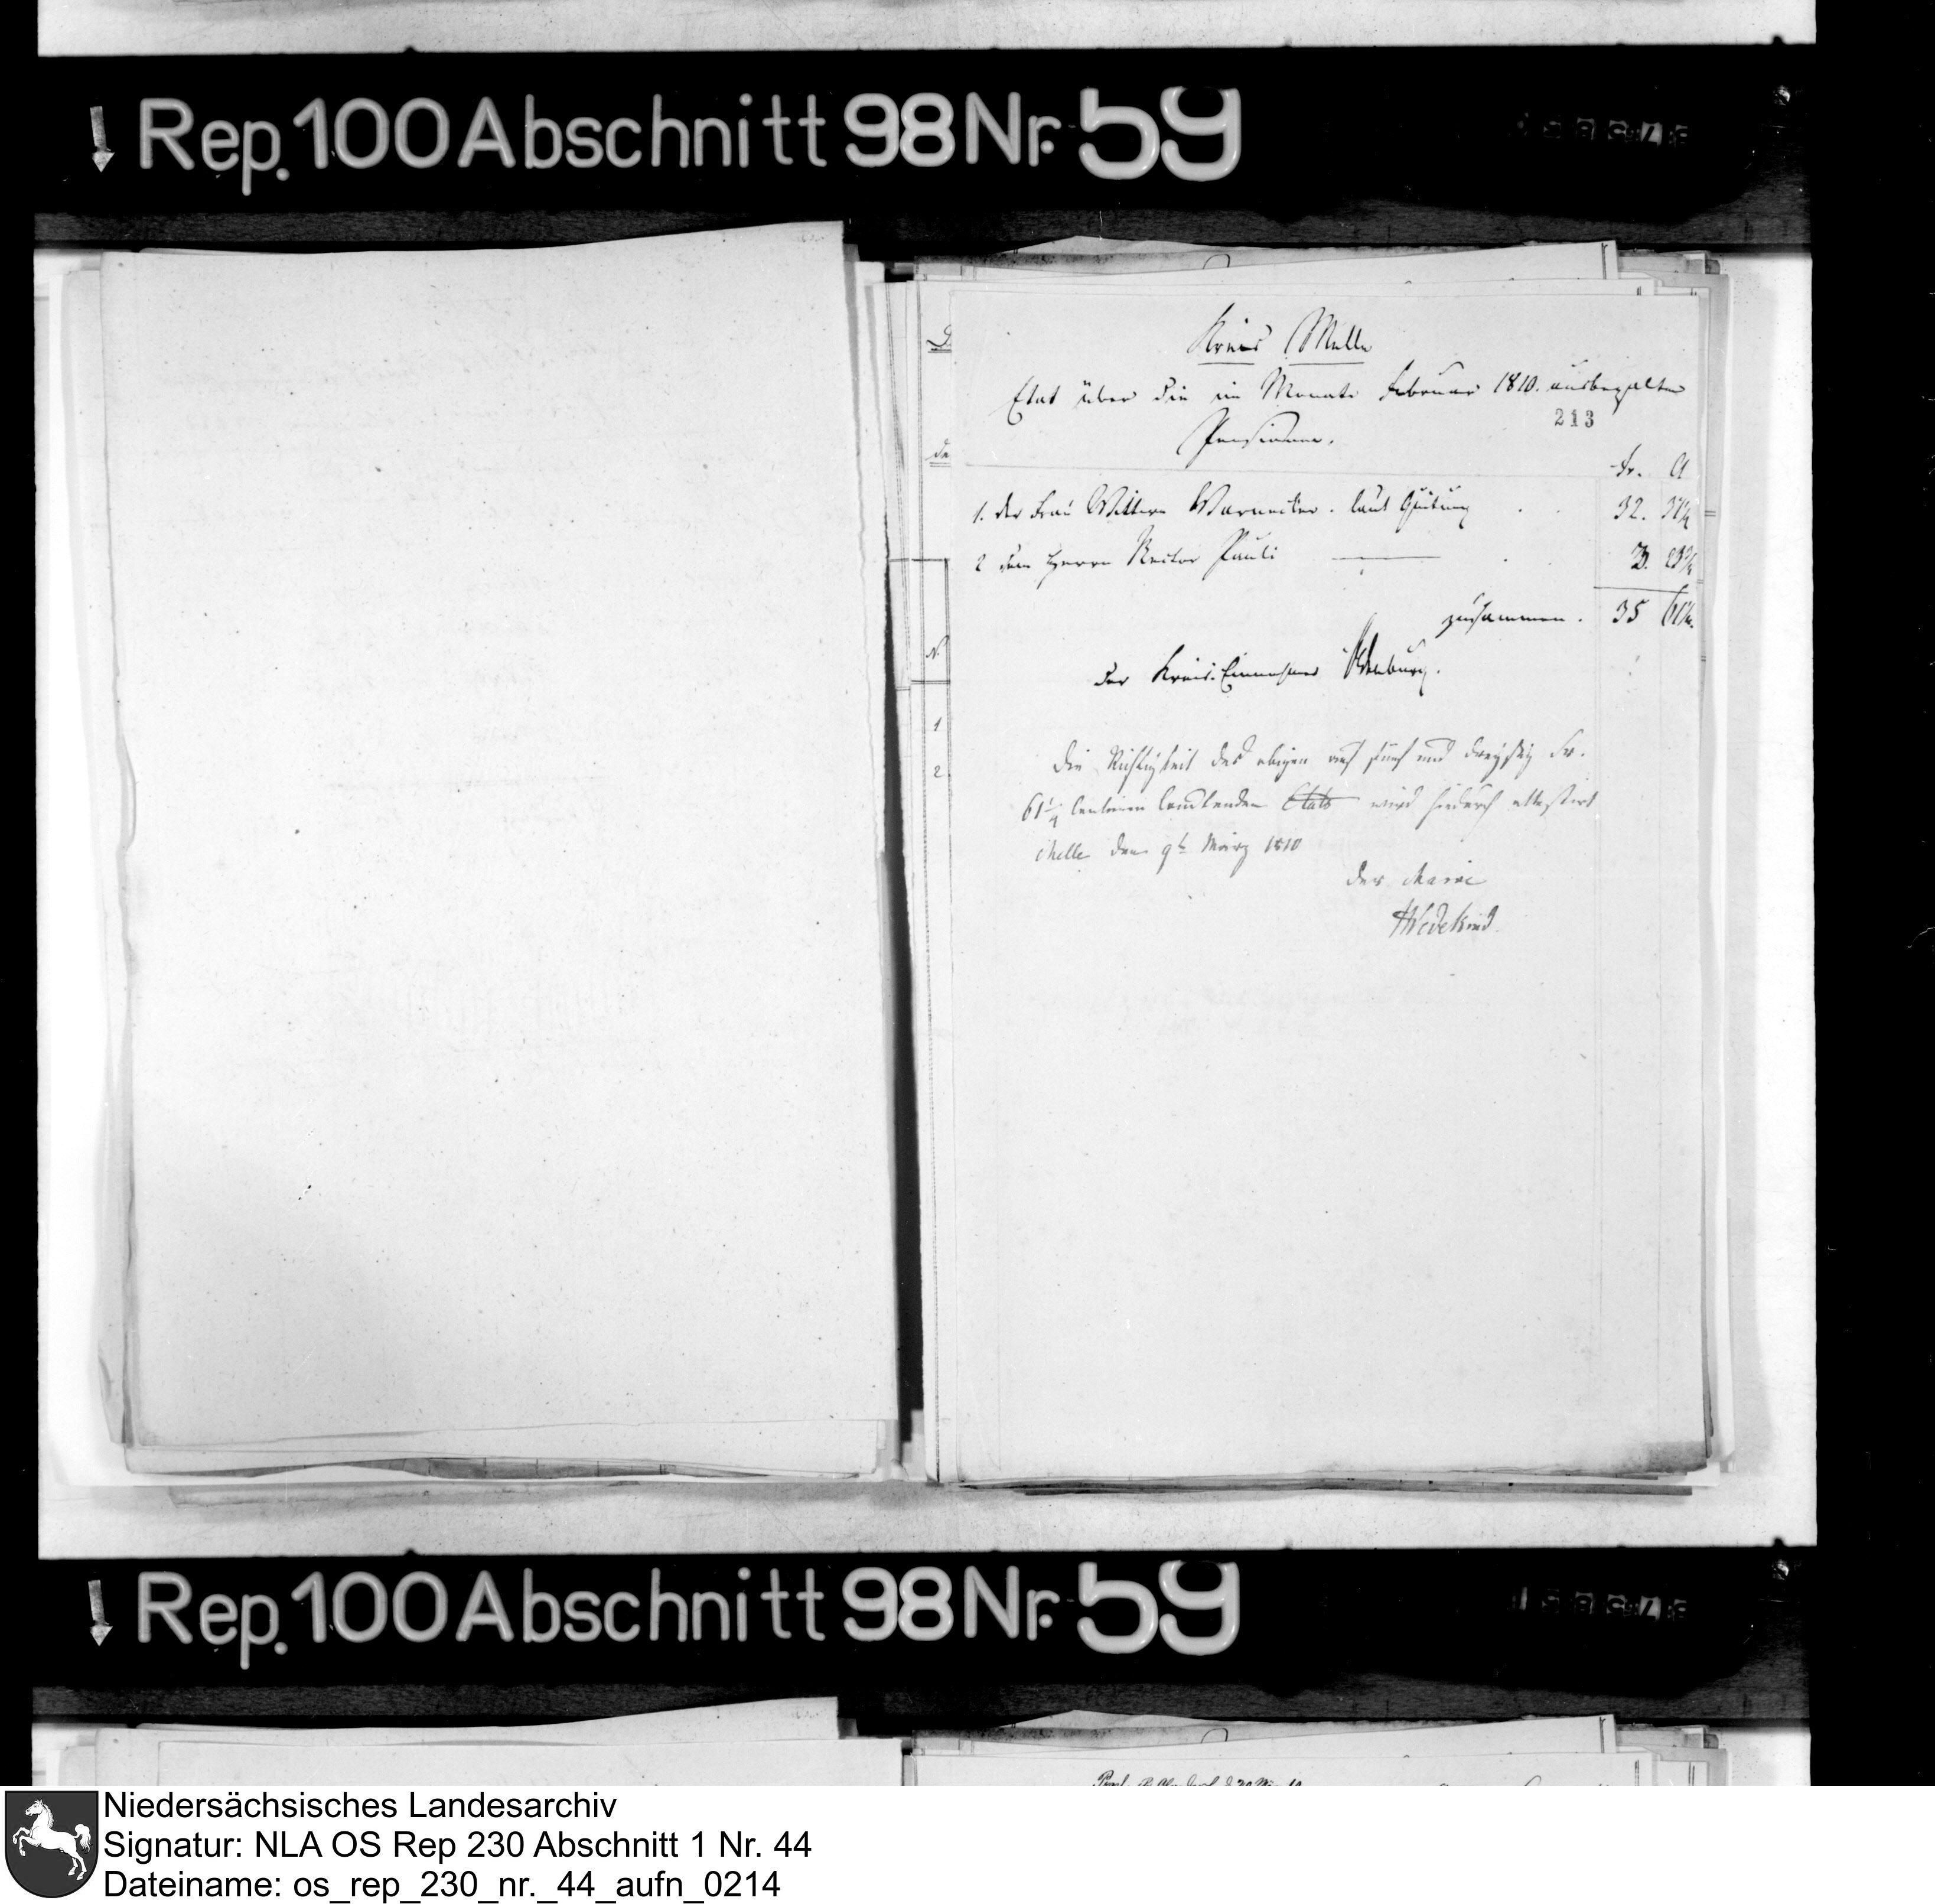 Rep. 100 Abschnitt 98 Nr. 59
Kreis Melle
Etat über die im Monate Februar 1810. ausbezalten
213
Pensionen.
fr. Ct
1. der Frau Wittwe Warnecke. laut Quitung . . 32. 37½
2 dem Herrn Rector Pauli ——— . 3.
zusammen. 35 61¼.
der Kreis-Einnehmer
N.
1
2
Die Richtigkeit des obigen auf fünf und dreyßig Fr.
61¼ Centimen lautenden Etats wird hiedurch attestirt
Melle den 9t März 1810
Der Maire
HWedekind
Rep. 100 Abschnitt 98 Nr. 59
Niedersächsisches Landesarchiv
Signatur: NLA OS Rep 230 Abschnitt 1 Nr. 44
Dateiname: os_rep_230_nr._44_aufn_0214